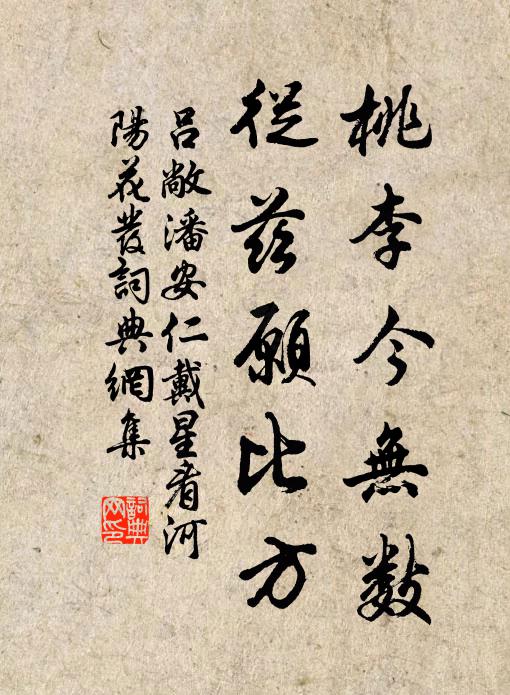 桃李今無數
從茲願比方
呂敞潘安仁戴星看河
陽花發詞典網集
詞典
网印